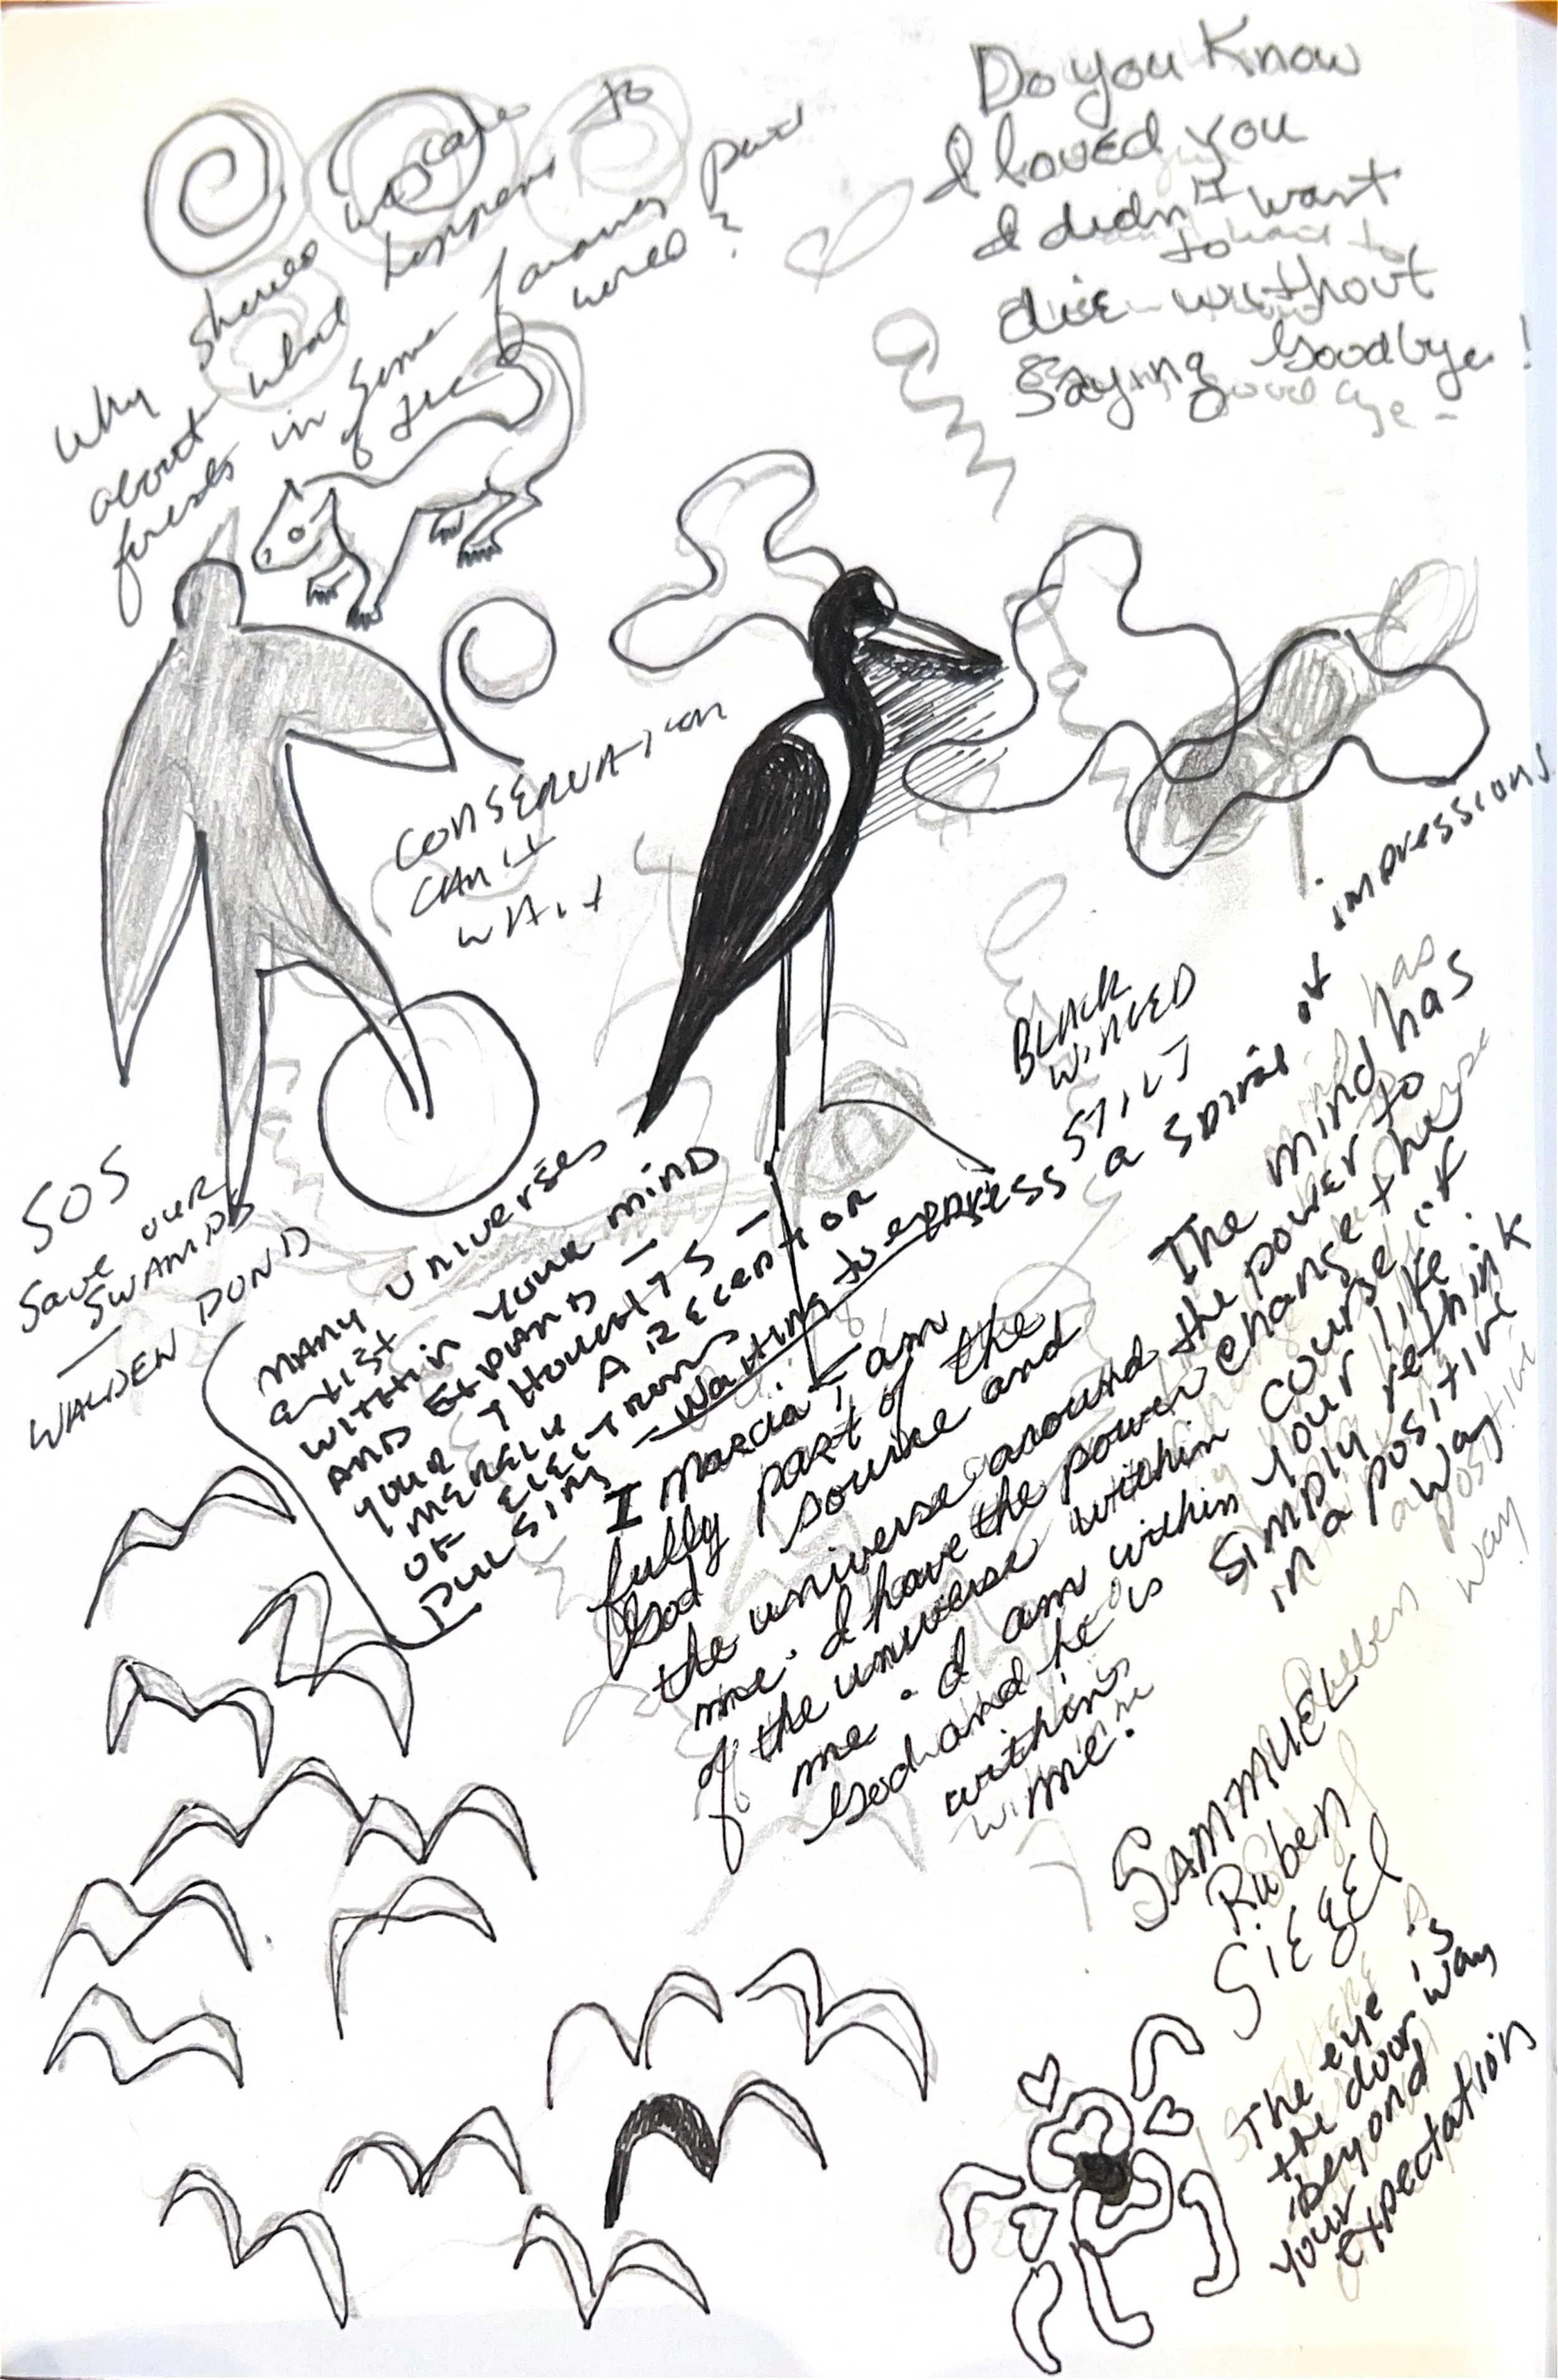 Do you Know
I loved you
I didn't want
to
die without
saying Goodbye!
Why should we care to
about what happens
forests in some faraway part
of the world?
CONSERVATION
CAN'T
WAIT
BLACK
WINGED
STILT
SOS
Save our
SWAMPS
WALDEN POND
MANY UNIVERSES
EXIST
WITHIN YOUR MIND
AND EXPAND –
YOUR THOUGHTS –
MERELY A RECEPTOR
OF ELECTRONS
PULSING
– Waiting to express a spiral of impressions
I Marcia I am
fully part of the
God source and
the universe around
me. I have the power
of the universe within
me. I am within
God and he is
within
me.
The mind has
the power to
change the
course of
your life.
Simply rethink
in a positive
way
SAMMUEL
Ruben
SiEgEl
The eye is
the doorway
beyond
your
expectation